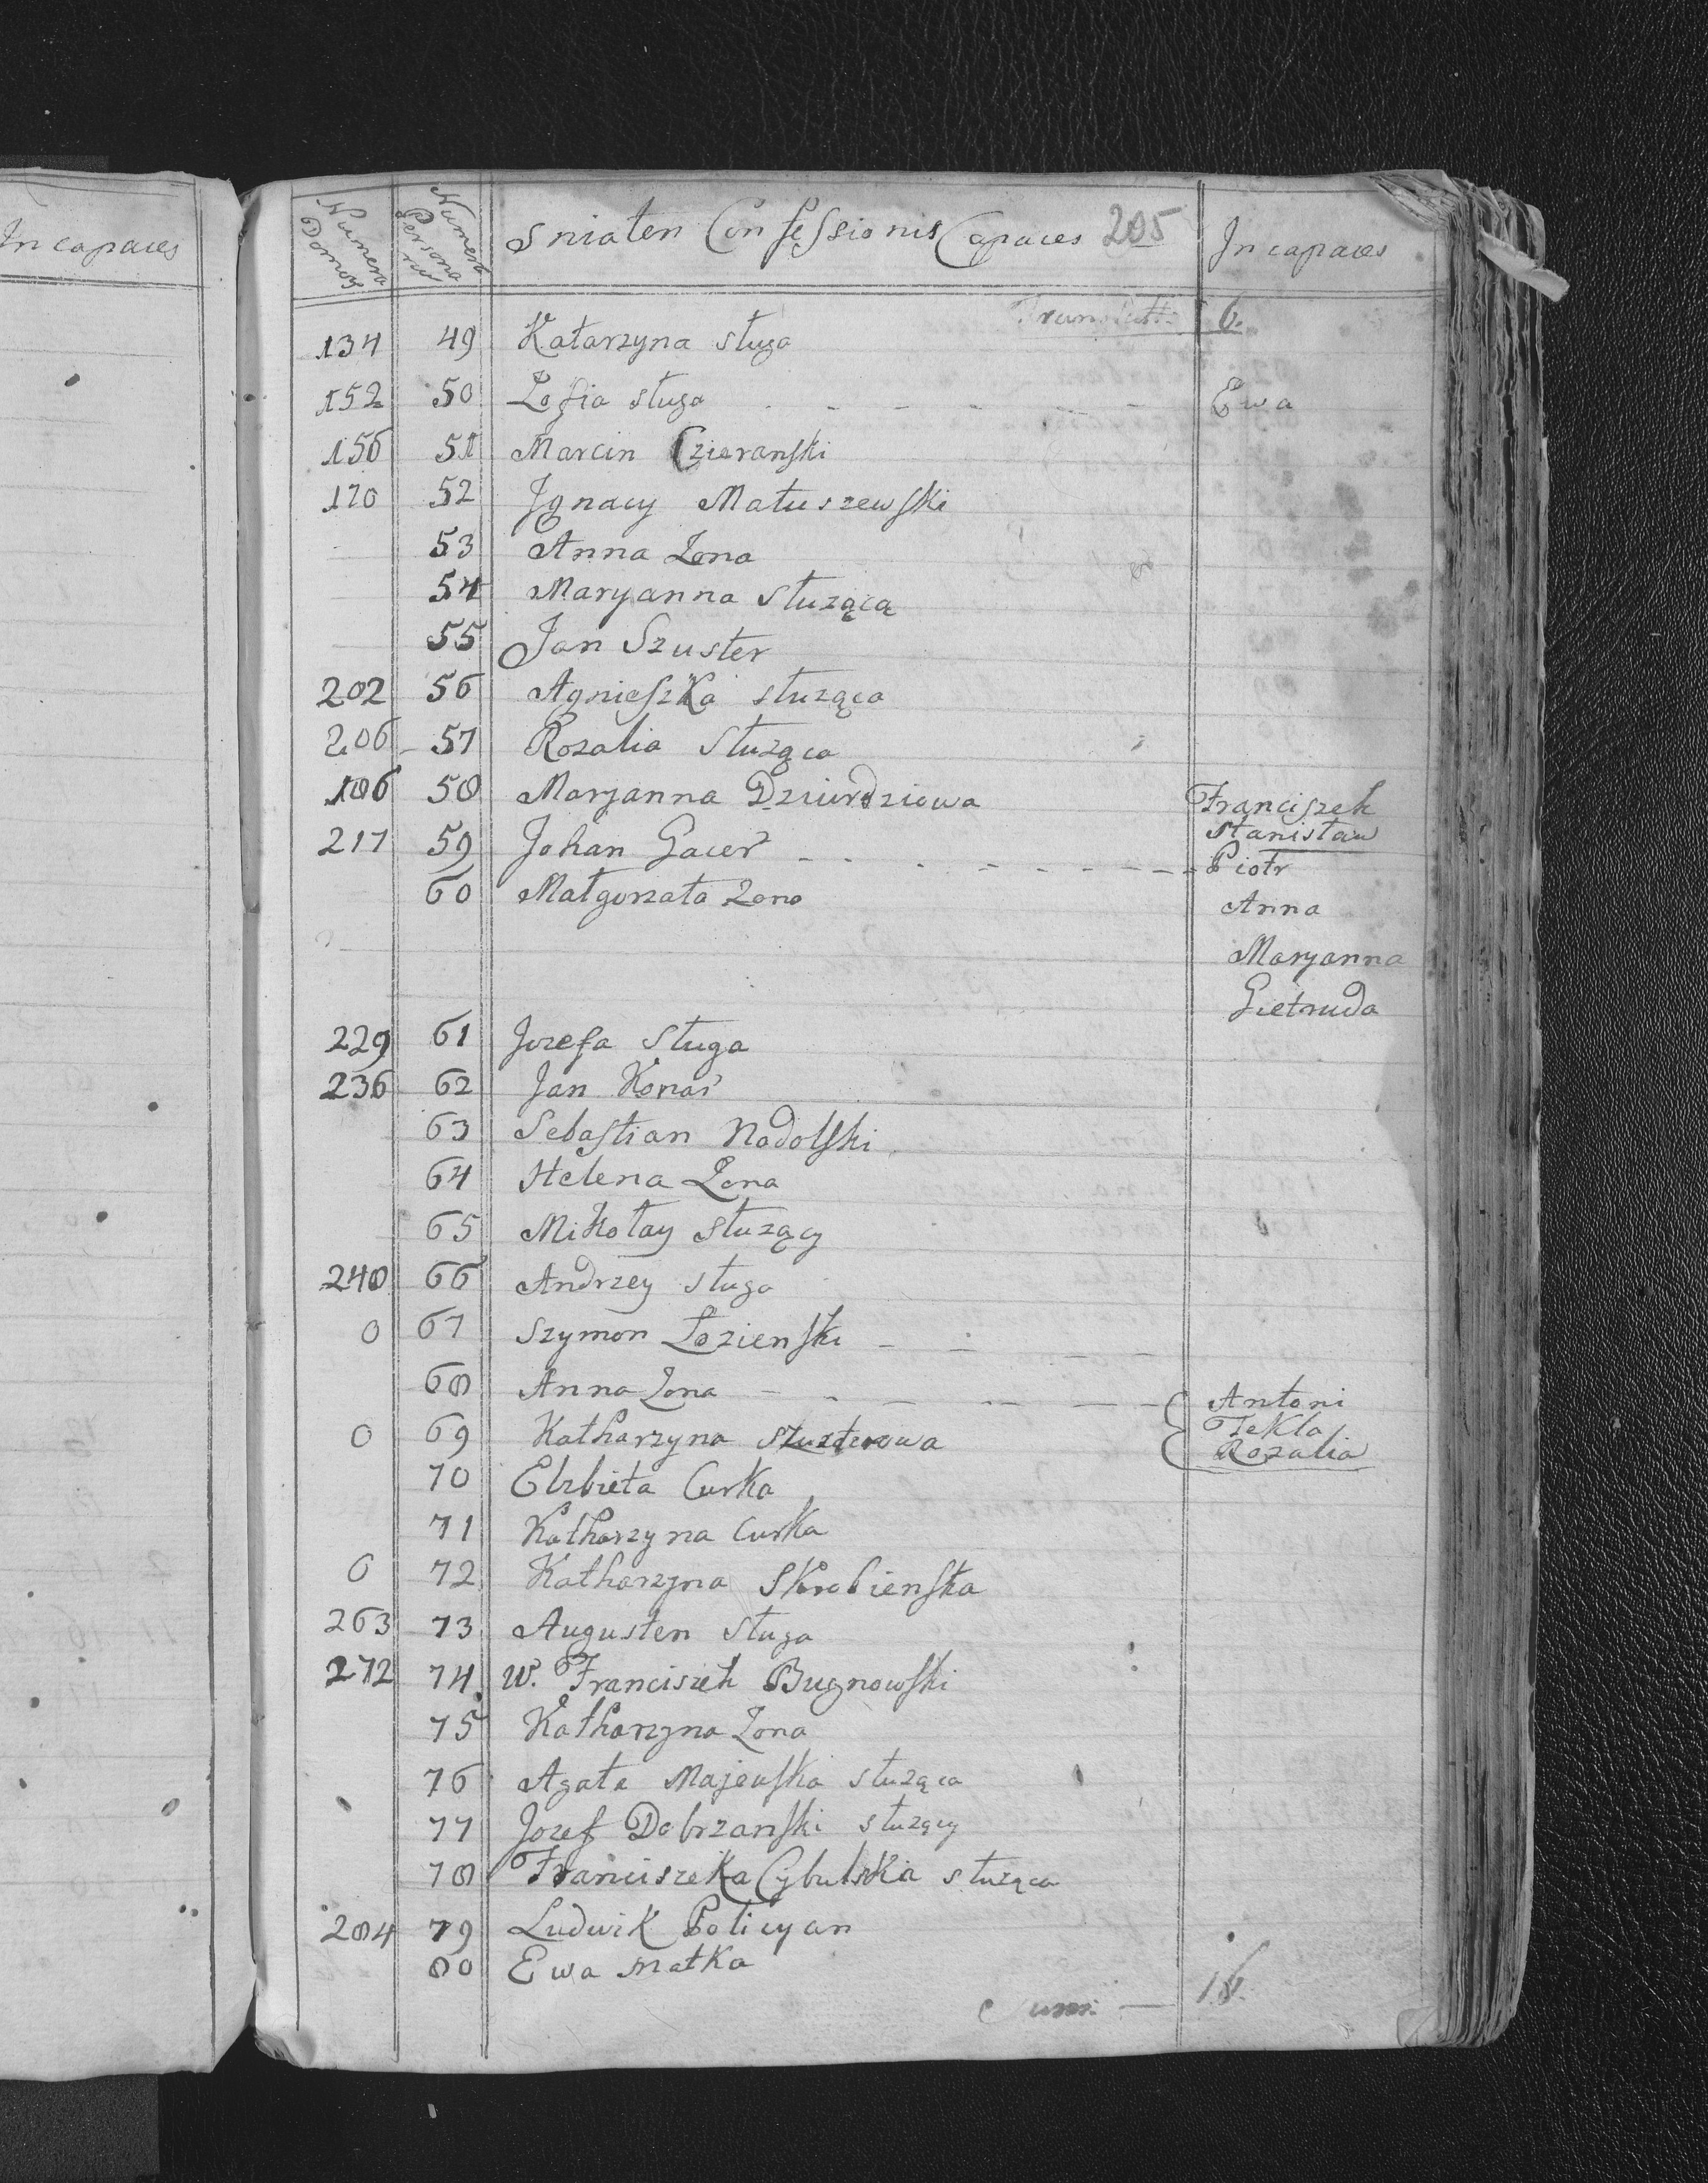 In capaces
Numera Domos
Numera Persona rui
Sniaten Confessionis Capaces 205
In capaces
6.
134 49 Katarzyna sługa
152 50 Zofia sługa - - - - - - Ewa
156 51 Marcin Czieranski
170 52 Jgnacy Matuszewski
53 Anna Zona
54 Maryanna służąca
55 Jan Szuster
202 56 Agnieszka służąca
206 57 Rozalia służąca
186 58 Maryanna Dziurdziowa Franciszek
Stanisław
217 59 Johan Gacer - - - - - - - - Piotr
60 Małgorzata Zona Anna
Maryanna
Gietruda
229 61 Jozefa Sługa
236 62 Jan Konas
63 Sebastian Nadolski
64 Helena Zona
65 Mikołay służący
248 66 Andrzey sługa
0 67 Szymon Łozienski - - - -
68 Anna Zona - - - - - Antoni
0 69 Katharzyna Szusterowa Tekla
Rozalia
70 Elzbieta Curka
71 Katharzyna Curka
0 72 Katharzyna Skrobienska
263 73 Augusten sługa
272 74 W. Franciszek Bugnowski
75 Katharzyna Zona
76 Agata Majewska służąca
77 Jozef Dobrzanski służący
78 Franciszeka Cybulska służąca
284 79 Ludwik Policyan
80 Ewa matka
Sum: — 16.